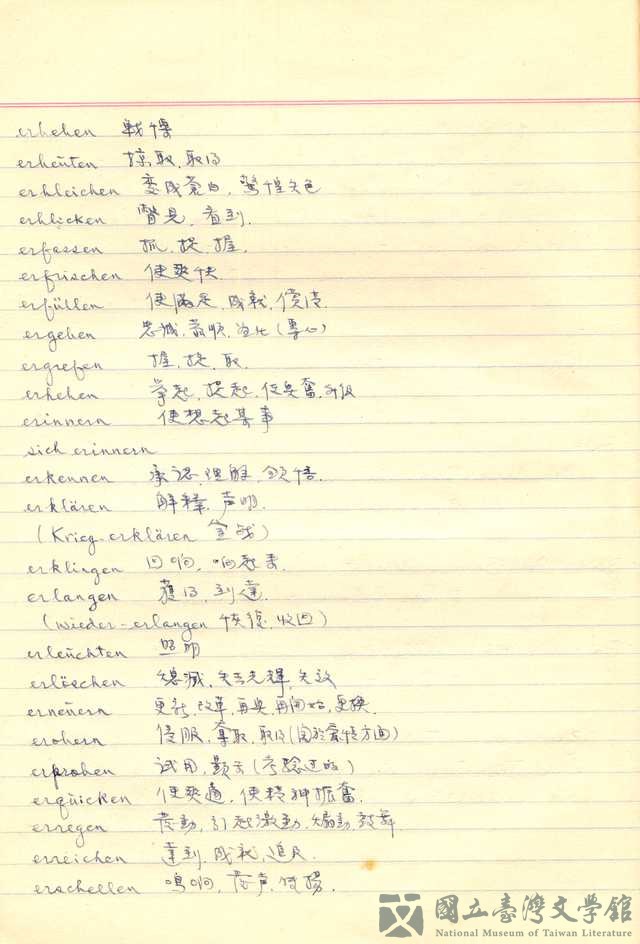 erbeben 戰慄
erbeuten 掠取, 取得
erbleichen 变成蒼白, 驚惶失色
erblicken 瞥見, 看到.
erfassen 抓, 捉, 握.
erfrischen 使爽快
erfüllen 使滿足, 成就, 償清
ergeben 忠誠, 着順, 専心)
ergrefen 握, 捉, 取.
erheben 拿起, 提起, 使兴奮, 升級
erinnern 使想起某事
sich erinnern
erkennen 承認, 理解, 領悟.
erklären 解釋, 声明.
(Krieg-erklären 宣战)
erklingen 回响, 响起来.
erlangen 獲得, 到達.
(wieder-erlangen 恢復, 收回)
erleuchten 照明
erlöschen 熄滅, 失去光輝, 失效
erneuern 更新, 改革, 再興, 再開始, 更換.
erobern 侵服, 拿取, 取得(関於愛情方面)
erproben 试用, 顕示(考驗过的)
erquicken 使爽適, 使精神振奮.
erregen 發動, 引起激動, 煽動, 鼓舞
erreichen 達到, 成就, 追及.
erschellen 鳴响, 發声, 傳揚.
國立臺灣文學館
National Museum of Taiwan Literature